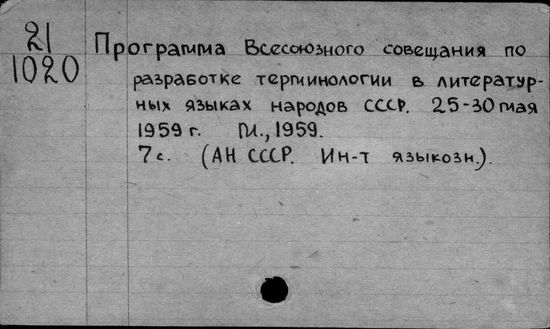 21
1020
Программа Всесоюзного совещания по
разработке терминологии в литератур-
ных языках народов СССР. 25-30 мая
1959 г. М., 1959.
7 с. (АН СССР. Ин-т языкозн.).